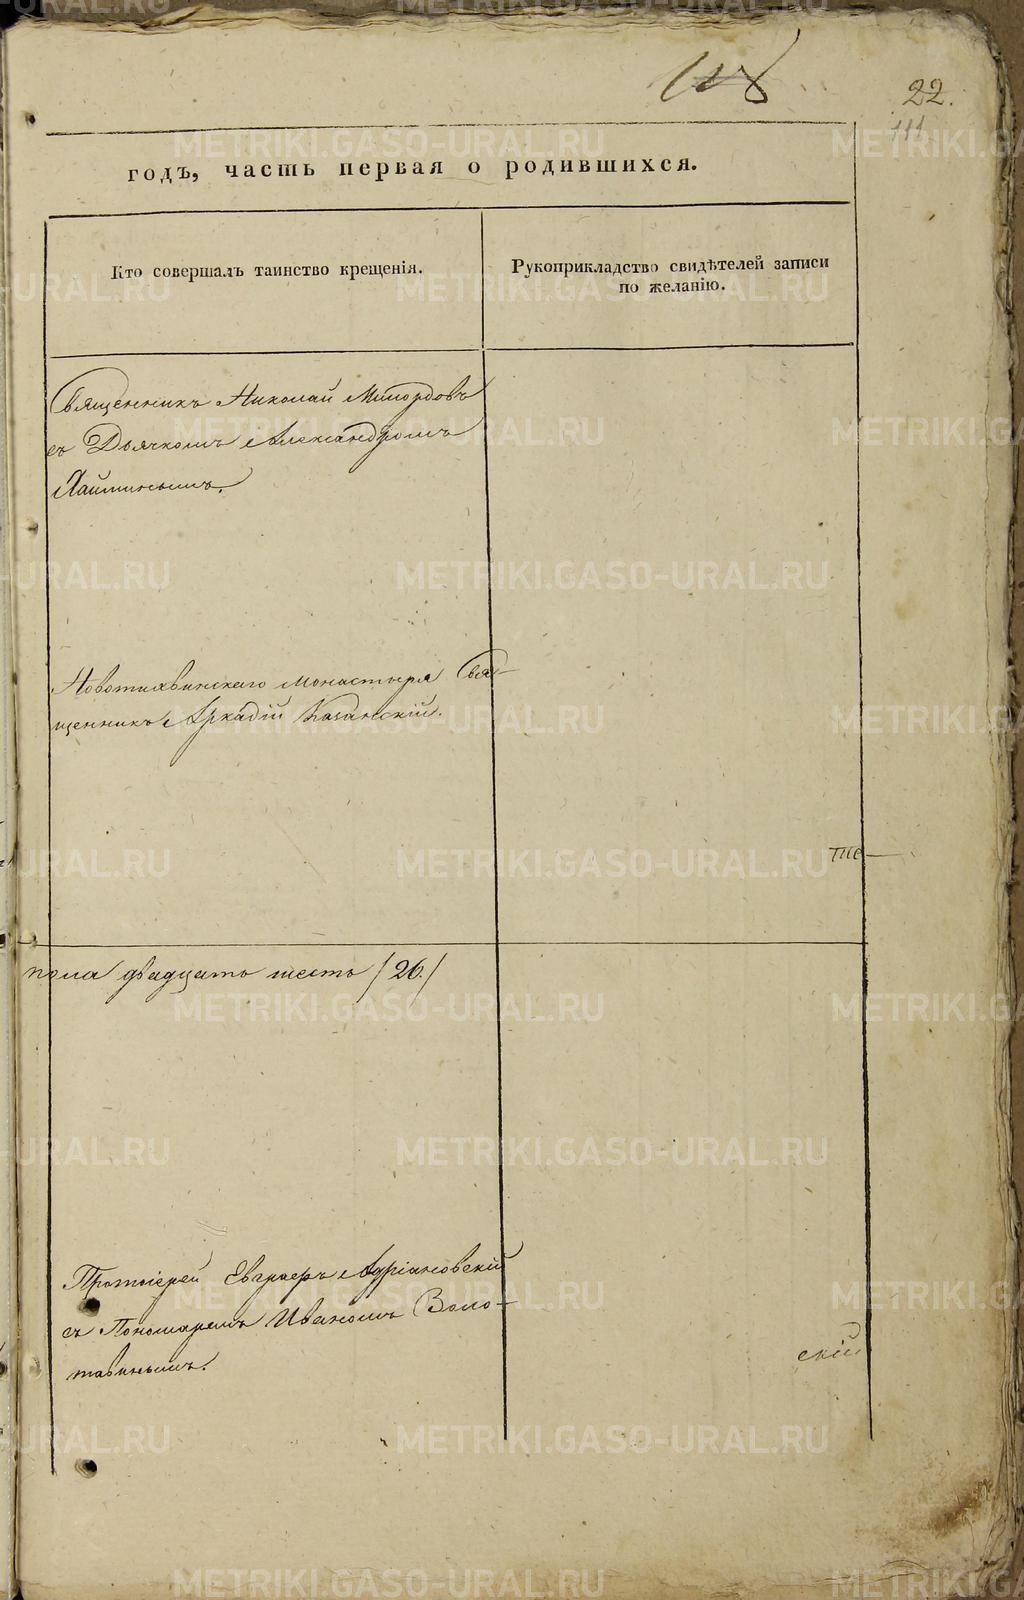 22.
111
годъ, часть первая о родившихся.
Кто совершалъ таинство крещенія.
Рукоприкладство свидѣтелей записи
по желанію.
Священникъ Николай Милордовъ
съ Дьячкомъ Александромъ
Хайминымъ.
Новотихвинскаго Монастыря Свя-
щенникъ Аркадій Казанскій.
пола двадцать шесть /26./
Протоіерей Евграфъ Адріановскій
съ Пономаремъ Иваномъ Воло-
тавинымъ.
скій
METRIKI.GASO-URAL.RU